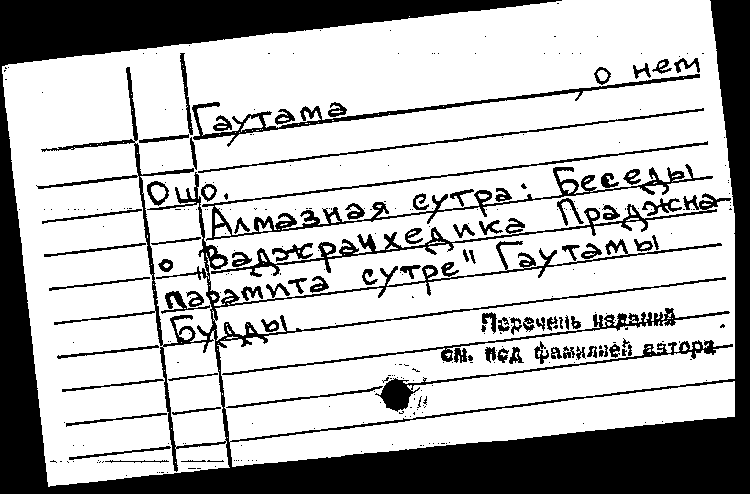 Гаутама , о нем
Ошо.
Алмазная сутра: Беседы
о „Ваджрачхедика Праджна
парамита сутре" Гаутамы
Будды.
Перечень изданий
см. под фамилией автора